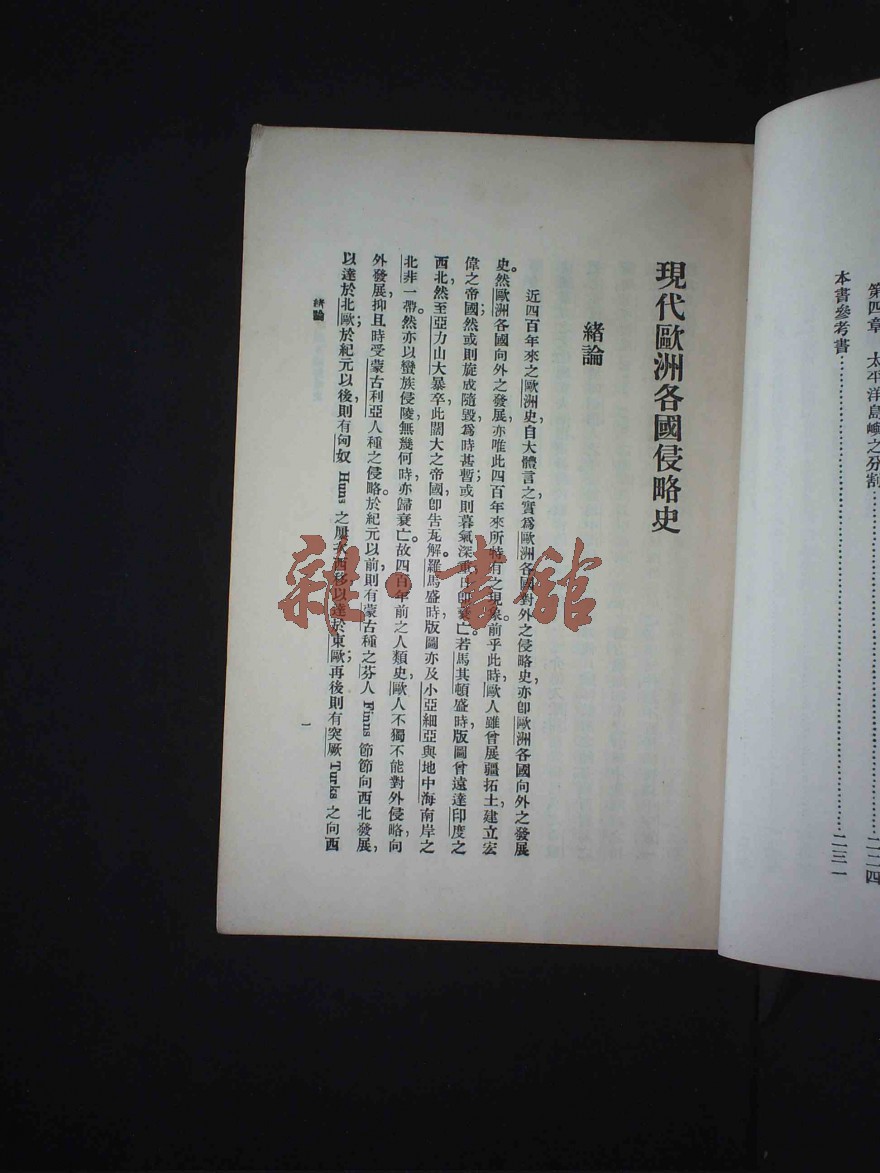 第四章 太平洋島嶼之分割……………………二二四
本書參考書……………………二三一
現代歐洲各國侵略史
緒論
近四百年來之歐洲史，自大體言之，實爲歐洲各國對外之侵略史，亦卽歐洲各國向外之發展
史。然歐洲各國向外之發展，亦唯此四百年來所特有之現象。前乎此時，歐人雖曾展疆拓土，建立宏
偉之帝國，然或則旋成隨毀，爲時甚暫；或則暮氣深重，乃卽衰亡。若馬其頓盛時，版圖曾遠達印度之
西北，然至亞力山大暴卒，此闊大之帝國，卽告瓦解。羅馬盛時版圖亦及小亞細亞與地中海南岸之
北非一帶，然亦以蠻族侵陵，無幾何時，亦歸衰亡。故四百年前之人類史，歐人不獨不能對外侵略，向
外發展，抑且時受蒙古利亞人種之侵略。於紀元以前，則有蒙古種之芬人 Finns 節節向西北發展，
以達於北歐；於紀元以後，則有匈奴 Huns 之屢次西移，以達於東歐；再後則有突厥 Turks 之向西
緒論
一
雜·書館